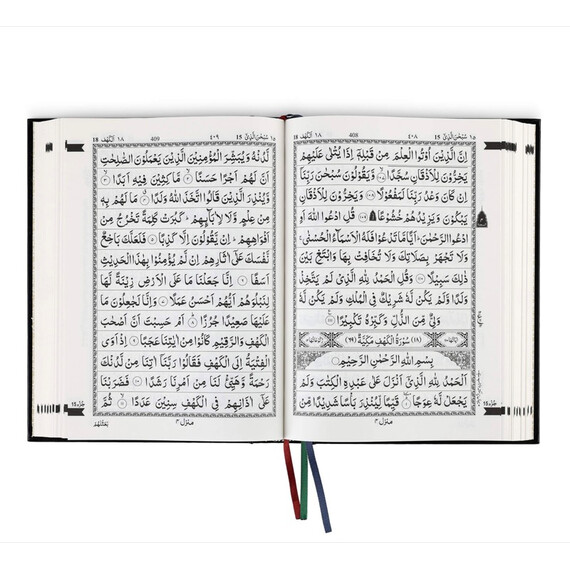 ١٥ سُبْحٰنَ الَّذِىْ 15 ٤٠٨ 408 ١٨ اَلْكَهْف 18
اِنَّ الَّذِيْنَ اُوْتُوا الْعِلْمَ مِنْ قَبْلِهٖٓ اِذَا يُتْلٰى عَلَيْهِمْ
يَخِرُّوْنَ لِلْاَذْقَانِ سُجَّدًا ۙ وَّيَقُوْلُوْنَ سُبْحٰنَ رَبِّنَآ
اِنْ كَانَ وَعْدُ رَبِّنَا لَمَفْعُوْلًا وَيَخِرُّوْنَ لِلْاَذْقَانِ
يَبْكُوْنَ وَيَزِيْدُهُمْ خُشُوْعًا ۩ قُلِ ادْعُوا اللّٰهَ اَوِ
ادْعُوا الرَّحْمٰنَ ؕ اَيًّا مَّا تَدْعُوْا فَلَهُ الْاَسْمَآءُ الْحُسْنٰى ۚ
وَلَا تَجْهَرْ بِصَلَاتِكَ وَلَا تُخَافِتْ بِهَا وَابْتَغِ بَيْنَ
ذٰلِكَ سَبِيْلًا وَقُلِ الْحَمْدُ لِلّٰهِ الَّذِىْ لَمْ يَتَّخِذْ
وَلَدًا وَّلَمْ يَكُنْ لَّهٗ شَرِيْكٌ فِى الْمُلْكِ وَلَمْ يَكُنْ لَّهٗ
وَلِىٌّ مِّنَ الذُّلِّ وَكَبِّرْهُ تَكْبِيْرًا
(١٨) سُوْرَةُ الْكَهْفِ مَكِّيَّةٌ (٦٩)
بِسْمِ اللّٰهِ الرَّحْمٰنِ الرَّحِيْمِ
اَلْحَمْدُ لِلّٰهِ الَّذِىْٓ اَنْزَلَ عَلٰى عَبْدِهِ الْكِتٰبَ وَلَمْ
يَجْعَلْ لَّهٗ عِوَجًا قَيِّمًا لِّيُنْذِرَ بَاْسًا شَدِيْدًا مِّنْ
منزل ٤
جُزء 15
١٥ سُبْحٰنَ الَّذِىْ 15 ٤٠٩ 409 ١٨ اَلْكَهْف 18
لَّدُنْهُ وَيُبَشِّرَ الْمُؤْمِنِيْنَ الَّذِيْنَ يَعْمَلُوْنَ الصّٰلِحٰتِ
اَنَّ لَهُمْ اَجْرًا حَسَنًا مَّاكِثِيْنَ فِيْهِ اَبَدًا
وَّيُنْذِرَ الَّذِيْنَ قَالُوا اتَّخَذَ اللّٰهُ وَلَدًا مَا لَهُمْ بِهٖ
مِنْ عِلْمٍ وَّلَا لِاٰبَآئِهِمْ ؕ كَبُرَتْ كَلِمَةً تَخْرُجُ مِنْ
اَفْوَاهِهِمْ ؕ اِنْ يَّقُوْلُوْنَ اِلَّا كَذِبًا فَلَعَلَّكَ بَاخِعٌ
نَّفْسَكَ عَلٰٓى اٰثَارِهِمْ اِنْ لَّمْ يُؤْمِنُوْا بِهٰذَا الْحَدِيْثِ
اَسَفًا اِنَّا جَعَلْنَا مَا عَلَى الْاَرْضِ زِيْنَةً لَّهَا
لِنَبْلُوَهُمْ اَيُّهُمْ اَحْسَنُ عَمَلًا وَاِنَّا لَجٰعِلُوْنَ مَا
عَلَيْهَا صَعِيْدًا جُرُزًا اَمْ حَسِبْتَ اَنَّ اَصْحٰبَ
الْكَهْفِ وَالرَّقِيْمِ كَانُوْا مِنْ اٰيٰتِنَا عَجَبًا اِذْ اَوَى
الْفِتْيَةُ اِلَى الْكَهْفِ فَقَالُوْا رَبَّنَآ اٰتِنَا مِنْ لَّدُنْكَ
رَحْمَةً وَّهَيِّئْ لَنَا مِنْ اَمْرِنَا رَشَدًا فَضَرَبْنَا
عَلٰٓى اٰذَانِهِمْ فِى الْكَهْفِ سِنِيْنَ عَدَدًا ثُمَّ
منزل ٤
بَعَثْنٰهُمْ
جُزء 15